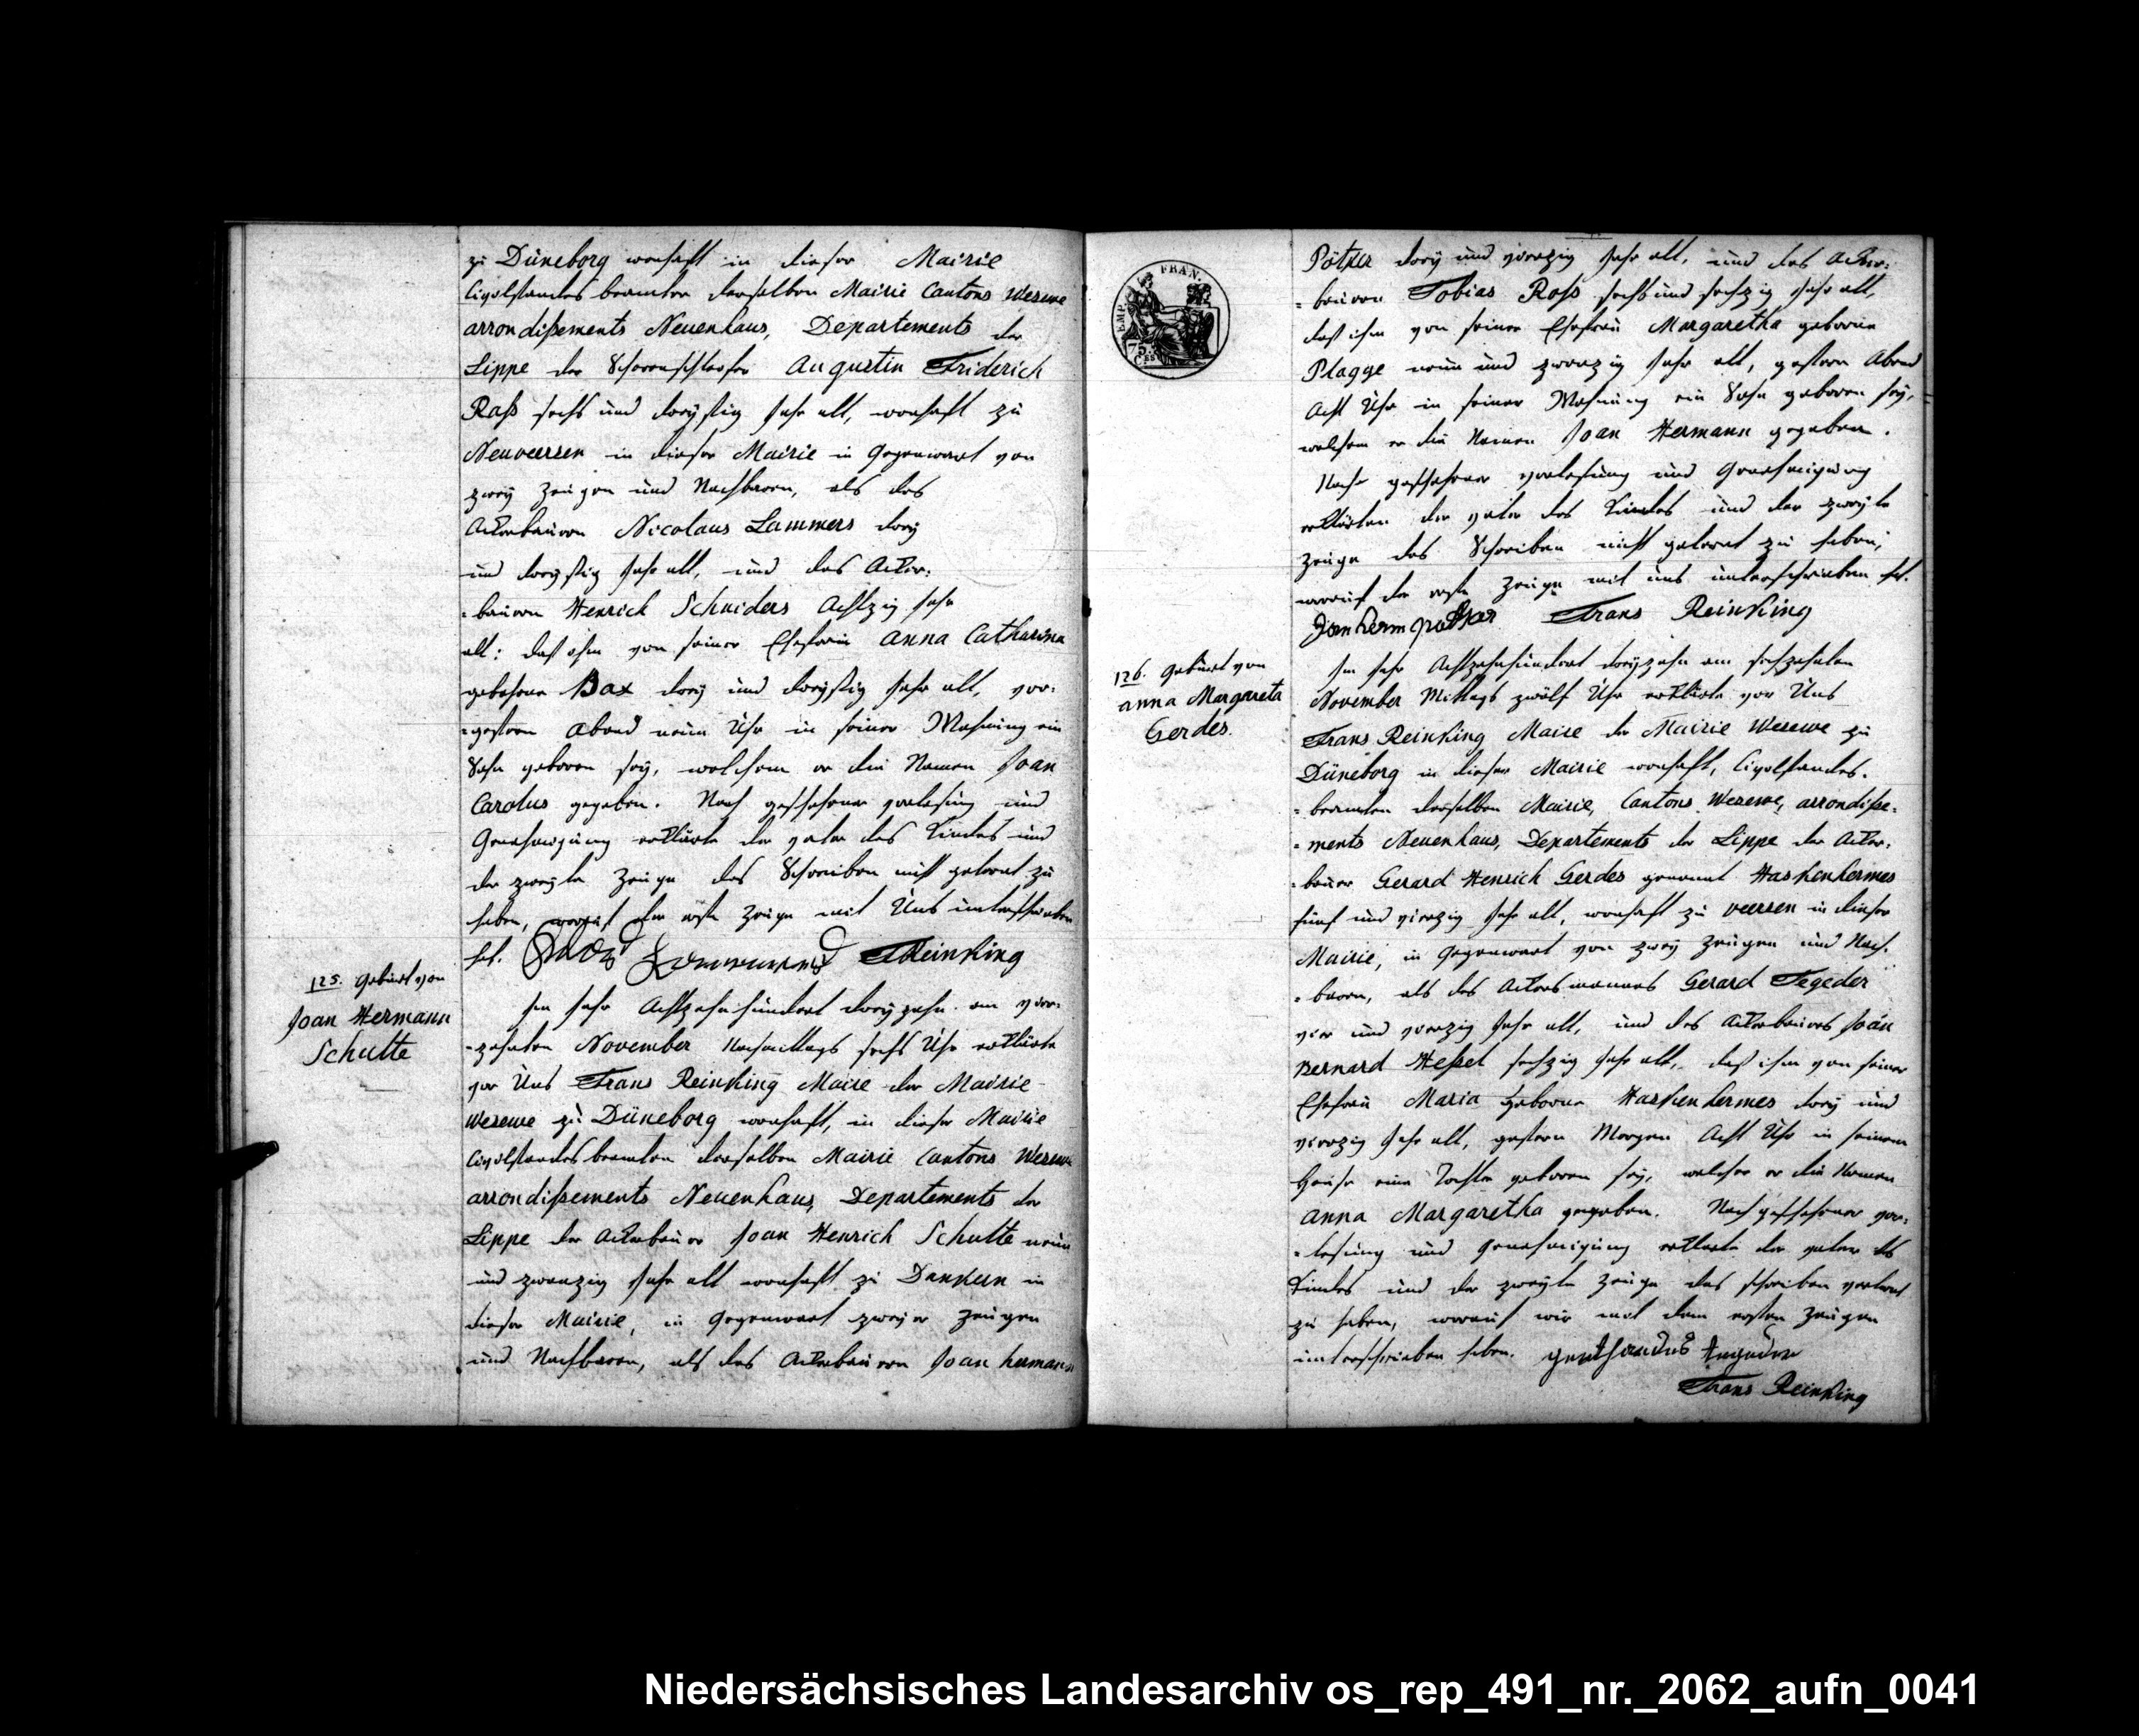 zu Düneborg wonhaft in dieser Mairie
Civilstandes beamten derselben Mairie Cantons Wesewe
arrondißements Neuenhaus, Departements der
Lippe der Scherenschleifer Augustin Friderich
Raß sechs und dreyßig Jahr alt, wonhaft zu
Neuveersen in dieser Mairie in Gegenwart von
zwey Zeugen und Nachbaren, als des
Ackerbauren Nicolaus Lammers drey
und dreyßig Jahr alt, und des Acker-
-bauren Henrich Schniders Achtzig Jahr
alt: daß ihm von seiner Ehefrau Anna Catharina
gebohrne Bax drey und dreyßig Jahr alt, vor-
-gestern Abend neun Uhr in seiner Wohnung ein
Sohn geboren sey, welchem er die Namen Joan
Carolus gegeben. Nach geschehener vorlesung und
Genehmigung erklärte der vater des Kindes und
der zweyte Zeuge das Schreiben nicht gelernt zu
haben, worauf der erste Zeuge mit Uns unterschrieben
hat. Lammers FReinking
125. Geburt von
Joan Hermann
Schulte
Im Jahr Achtzehnhundert dreyzehn am vier-
-zehnten November Nachmittags sechs Uhr erklärte
vor Uns Frans Reinking Maire der Mairie
Wesewe zu Düneborg wonhaft, in dieser Mairie
Civilstandes beamten derselben Mairie Cantons Wesewe
arrondißements Neuenhaus, Departements der
Lippe der Ackerbauer Joan Henrich Schulte neun
und zwanzig Jahr alt wonhaft zu Dankern in
dieser Mairie, in Gegenwart zweyer Zeugen
und Nachbaren, als des Ackerbauren Joan hermann
EMP. FRAN.
75.
C.ES
Pötker drey und vierzig Jahr alt, und des Acker-
-bauren Tobias Roß sechs und sechzig Jahr alt,
daß ihm von seiner Ehefrau Margaretha geborne
Plagge neun und zwanzig Jahr alt, gestern Abend
Acht Uhr in seiner Wohnung ein Sohn geboren sey,
welchem er die Namen Joan Hermann gegeben.
Nach geschehener vorlesung und Genehmigung
erklärten der vater des Kindes und der zweyte
Zeuge das Schreiben nicht gelernt zu haben,
worauf der erste Zeuge mit uns unterschrieben hat.
Jan herm potker Frans Reinking
126. Geburt von
Anna Margareta
Gerdes.
Im Jahr Achtzehnhundert dreyzehn am sechzehnten
November Mittags zwölf Uhr erklärte vor Uns
Frans Reinking Maire der Mairie Wesewe zu
Düneborg in dieser Mairie wonhaft, Civilstandes-
-beamten derselben Mairie, Cantons Wesewe, arrondiße-
-ments Neuenhaus, Departements der Lippe der Acker-
-bauer Gerard Henrich Gerdes genannt Haskenhermes
fünf und vierzig Jahr alt, wonhaft zu veersen in dieser
Mairie, in Gegenwart von zwey Zeugen und Nach-
-baren, als des Ackersmannes Gerard Tegeder
vier und vierzig Jahr alt, und des Ackerbaures Joan
Bernard Heßel sechzig Jahr alt, daß ihm von seiner
Ehefrau Maria geborne Haskenhermes drey und
vierzig Jahr alt, gestern Morgen Acht Uhr in seinem
Hause eine Tochter geboren sey, welcher er die Namen
Anna Margaretha gegeben. Nach geschehener vor-
-lesung und Genehmigung erklärte der vater des
Kindes und der zweyte Zeuge das schreiben verlernt
zu haben, worauf wir mit dem ersten Zeugen
unterschrieben haben. Tegeder
Frans Reinking
Niedersächsisches Landesarchiv os_rep_491_nr._2062_aufn_0041